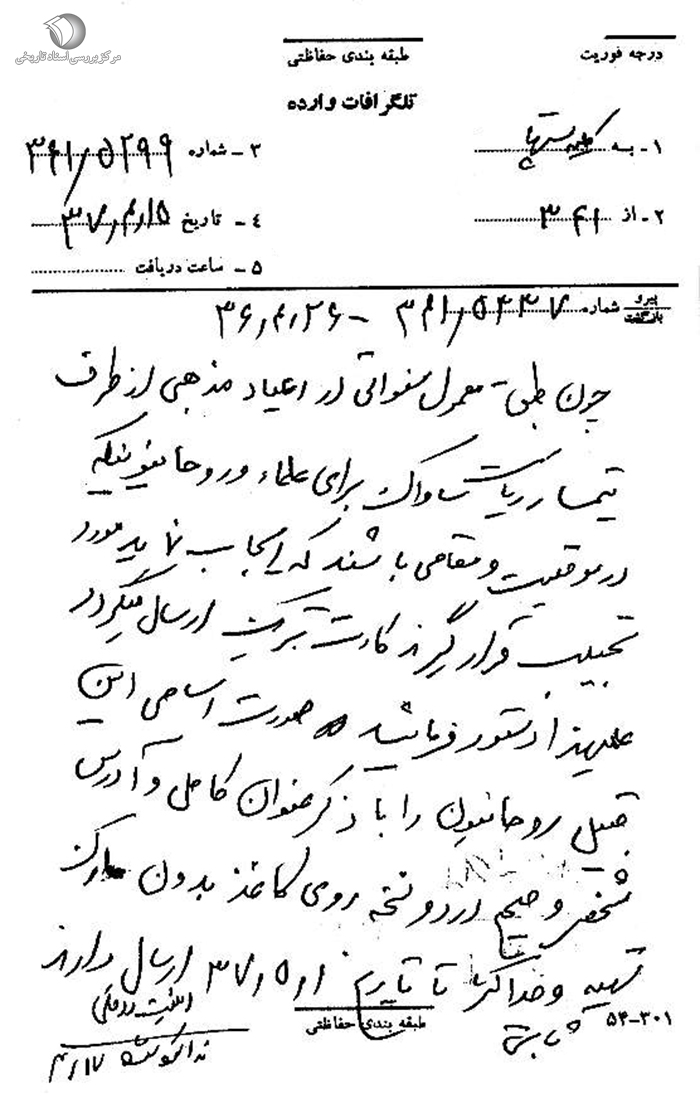 مرکز بررسی اسناد تاریخی
درجه فوریت
طبقه بندی حفاظتی
تلگرافات وارده
۱ - به کلیه ستها
۳ - شماره ۳۴۱/۵۲۹۹
۲ - از ۳۴۱
۴ - تاریخ ۳۷/۴/۱۵
۵ - ساعت دریافت
پیرو
بازگشت
شماره ۳۴۱/۵۴۳۷ - ۳۶/۴/۲۶
چون طبق معمول سنواتی در اعیاد مذهبی از طرف
تیمسار ریاست ساواک برای علماء و روحانیونیکه
در موقعیت و مقامی باشند که ایجاب نماید مورد
تحبیب قرار گیرند کارت تبریک ارسال میگردد
علیهذا دستور فرمائید صورت اسامی این
قبیل روحانیون را با ذکر عنوان کامل و آدرس
مشخص و صحیح در دو نسخه روی کاغذ بدون مارک
تهیه و حداکثر تا تاریخ ۳۷/۵/۱ ارسال دارند
ثابتی
۵۴-۳۰۱
طبقه بندی حفاظتی
۴/۱۷